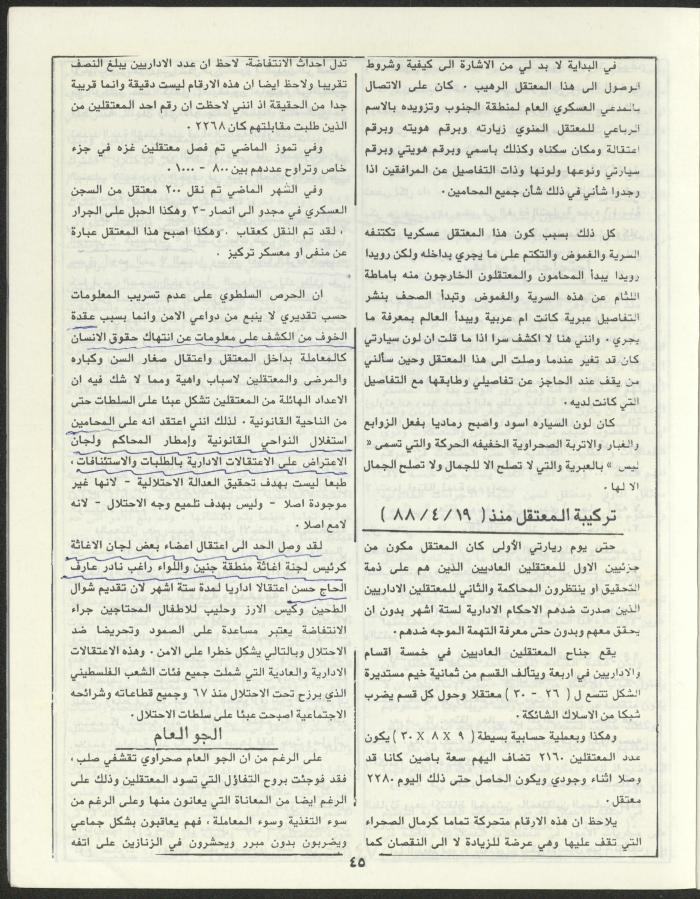 في البداية لا بد لي من الاشارة الى كيفية وشروط
الوصول الى هذا المعتقل الرهيب . كان على الاتصال
بالمدعي العسكري العام لمنطقة الجنوب وتزويده بالاسم
الرباعي للمعتقل المنوي زيارته وبرقم هويته وبرقم
اعتقالة ومكان سكناه وكذلك باسمي وبرقم هويتي وبرقم
سيارتي ونوعها ولونها وذات التفاصيل عن المرافقين اذا
وجدوا شأني في ذلك شأن جميع المحامين .
كل ذلك بسبب كون هذا المعتقل عسكريا تكتنفه
السرية والغموض والتكتم على ما يجري بداخله ولكن رويدا
رويدا يبدأ المحامون والمعتقلون الخارجون منه باماطة
اللثام عن هذه السرية والغموض وتبدأ الصحف بنشر
التفاصيل عبرية كانت ام عربية ويبدأ العالم بمعرفة ما
يجري . وانني هنا لا اكشف سرا اذا ما قلت ان لون سيارتي
كان قد تغير عندما وصلت الى هذا المعتقل وحين سألني
من يقف عند الحاجز عن تفاصيلي وطابقها مع التفاصيل
التي كانت لديه .
كان لون السياره اسود واصبح رماديا بفعل الزوابع
والغبار والاتربة الصحراوية الخفيفه الحركة والتي تسمى «
ليس » بالعبرية والتي لا تصلح الا للجمال ولا تصلح الجمال
الا لها .
تركيبة المعتقل منذ ( ١٩ / ٤ / ٨٨ )
حتى يوم زيارتي الأولى كان المعتقل مكون من
جزئيين الاول للمعتقلين العاديين الذين هم على ذمة
التحقيق او ينتظرون المحاكمة والثاني للمعتقلين الاداريين
الذين صدرت ضدهم الاحكام الادارية لستة اشهر بدون ان
يحقق معهم وبدون حتى معرفة التهمة الموجه ضدهم .
يقع جناح المعتقلين العاديين في خمسة اقسام
والاداريين في اربعة ويتألف القسم من ثمانية خيم مستديرة
الشكل تتسع ل ( ٢٦ - ٣٠ ) معتقلا وحول كل قسم يضرب
شبكا من الاسلاك الشائكة .
وهكذا وبعملية حسابية بسيطة ( ٩ X ٨ X ٣٠ ) يكون
عدد المعتقلين ٢١٦٠ تضاف اليهم سعة باصين كانا قد
وصلا اثناء وجودي ويكون الحاصل حتى ذلك اليوم ٢٢٨٠
معتقل .
يلاحظ ان هذه الارقام متحركة تماما كرمال الصحراء
التي تقف عليها وهي عرضة للزيادة لا الى النقصان كما
تدل احداث الانتفاضة. لاحظ ان عدد الاداريين يبلغ النصف
تقريبا ولاحظ ايضا ان هذه الارقام ليست دقيقة وانما قريبة
جدا من الحقيقة اذ انني لاحظت ان رقم احد المعتقلين من
الذين طلبت مقابلتهم كان ٢٢٦٨ .
وفي تموز الماضي تم فصل معتقلين غزه في جزء
خاص وتراوح عددهم بين ٨٠٠ - ١٠٠٠ .
وفي الشهر الماضي تم نقل ٢٠٠ معتقل من السجن
العسكري في مجدو الى انصار -٣ وهكذا الحبل على الجرار
، لقد تم النقل كعقاب . وهكذا اصبح هذا المعتقل عبارة
عن منفى او معسكر تركيز .
ان الحرص السلطوي على عدم تسريب المعلومات
حسب تقديري لا ينبع من دواعي الامن وانما بسبب عقدة
الخوف من الكشف على معلومات عن انتهاك حقوق الانسان
كالمعاملة بداخل المعتقل واعتقال صغار السن وكباره
والمرضى والمعتقلين لاسباب واهية ومما لا شك فيه ان
الاعداد الهائلة من المعتقلين تشكل عبئا على السلطات حتى
من الناحية القانونية . لذلك انني اعتقد انه على المحامين
استغلال النواحي القانونية وإمطار المحاكم ولجان
الاعتراض على الاعتقالات الادارية بالطلبات والاستئنافات ،
طبعا ليست بهدف تحقيق العدالة الاحتلالية - لانها غير
موجودة اصلا - وليس بهدف تلميع وجه الاحتلال - لانه
لامع اصلا .
لقد وصل الحد الى اعتقال اعضاء بعض لجان الاغاثة
كرئيس لجنة اغاثة منطقة جنين واللواء راغب نادر عارف
الحاج حسن اعتقالا اداريا لمدة ستة اشهر لان تقديم شوال
الطحين وكيس الارز وحليب للاطفال المحتاجين جراء
الانتفاضة يعتبر مساعدة على الصمود وتحريضا ضد
الاحتلال وبالتالي يشكل خطرا على الامن . وهذه الاعتقالات
الادارية والعادية التي شملت جميع فئات الشعب الفلسطيني
الذي يرزح تحت الاحتلال منذ ٦٧ وجميع قطاعاته وشرائحه
الاجتماعية اصبحت عبئا على سلطات الاحتلال .
الجو العام
على الرغم من ان الجو العام صحراوي تقشفي صلب ،
فقد فوجئت بروح التفاؤل التي تسود المعتقلين وذلك على
الرغم ايضا من المعاناة التي يعانون منها وعلى الرغم من
سوء التغذية وسوء المعاملة ، فهم يعاقبون بشكل جماعي
ويضربون بدون مبرر ويحشرون في الزنازين على اتفه
٤٥